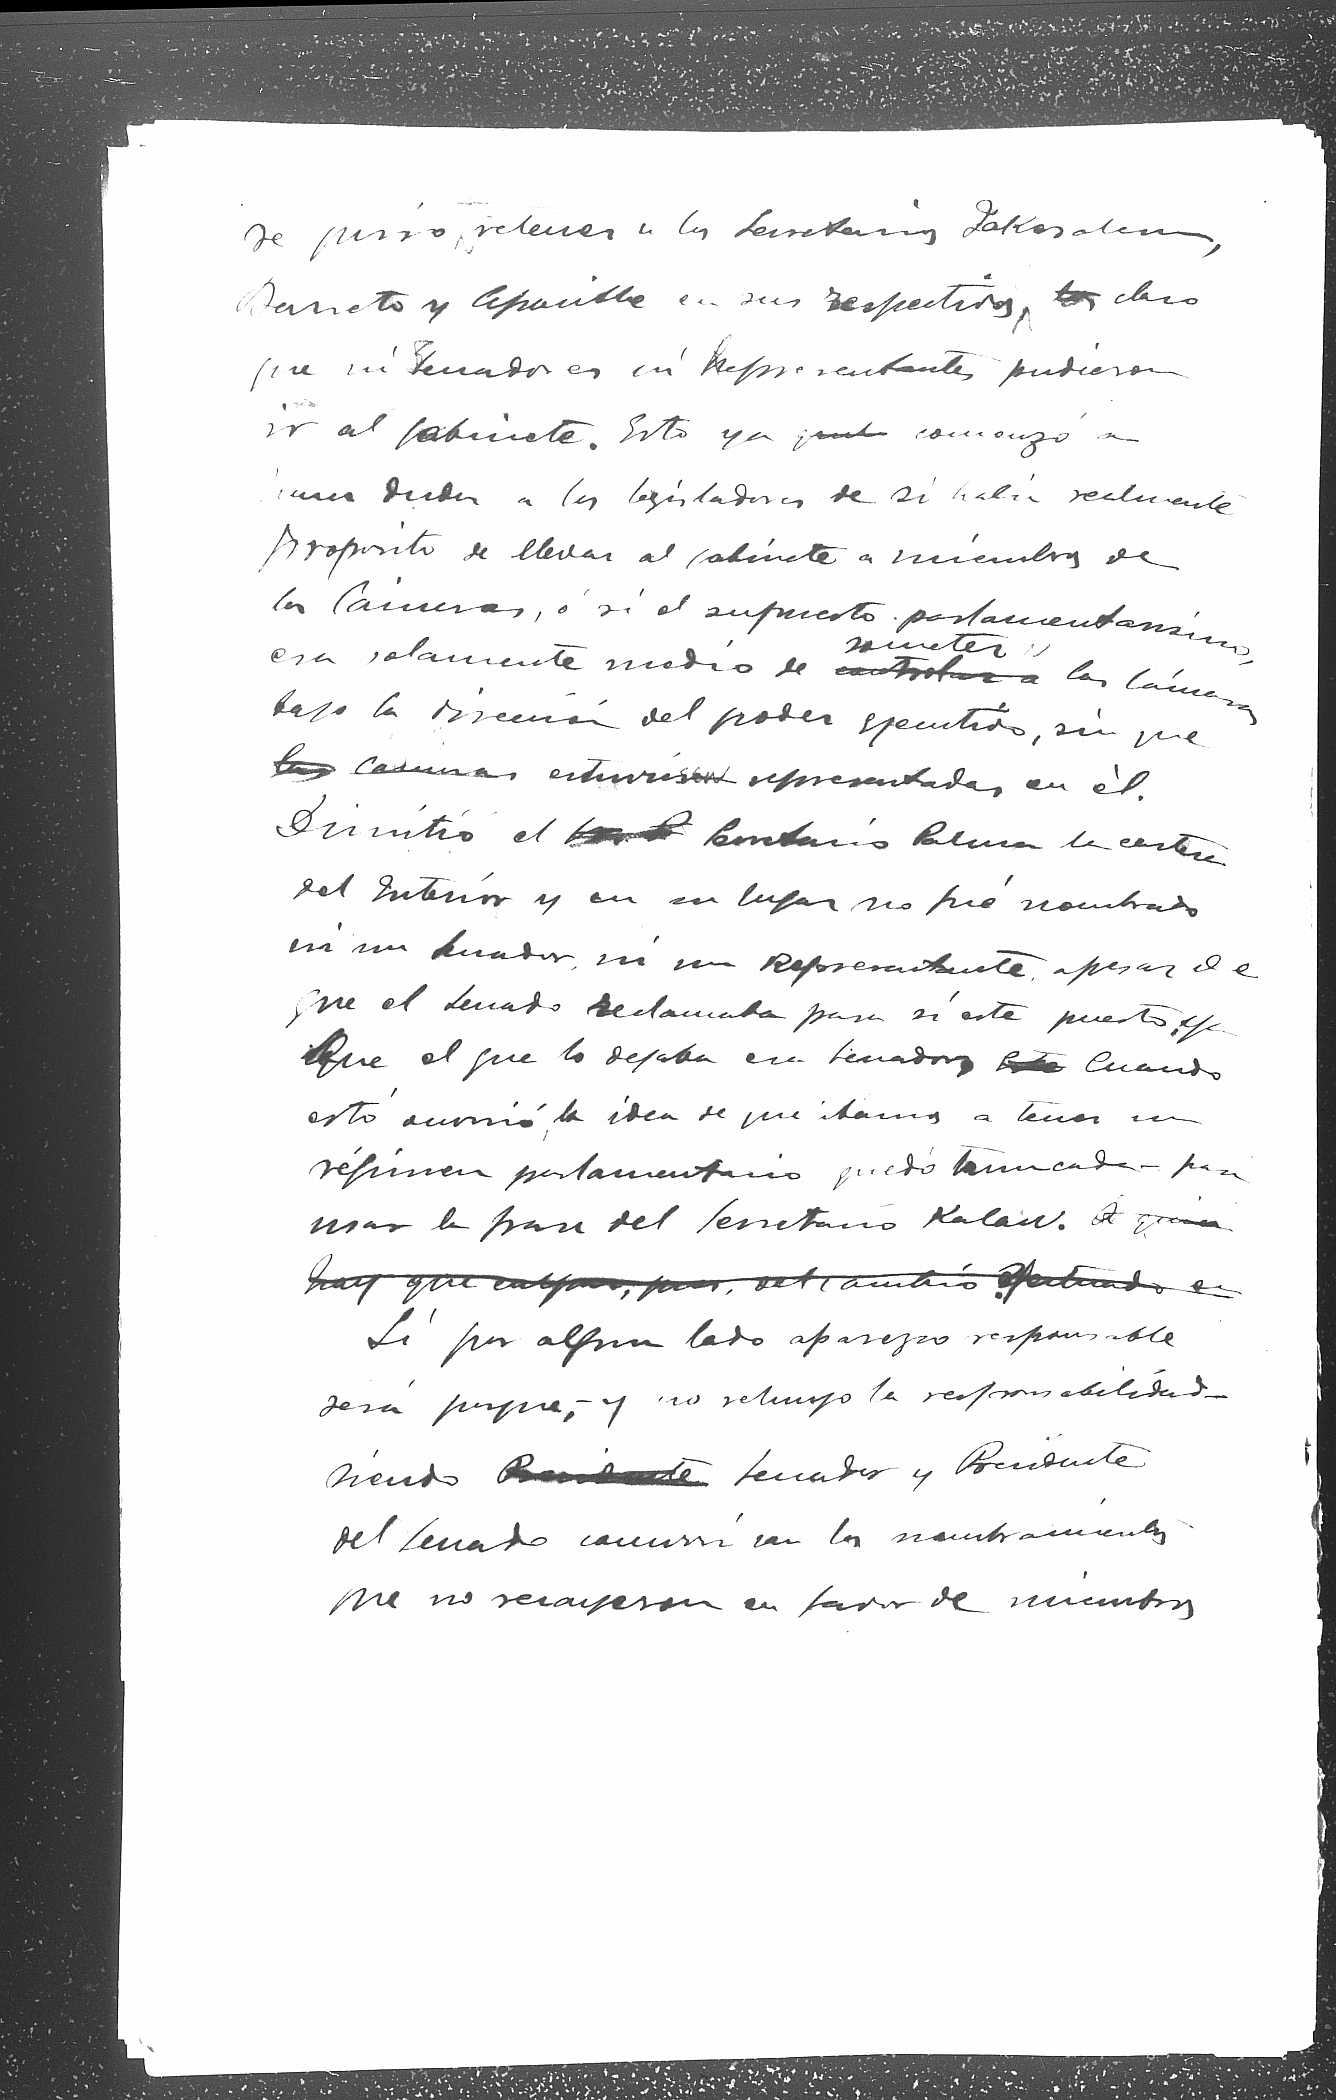 se quiso, retener a los Secretarios Jakosalem,
Barreto y Apacible en sus respectivos, los claro
que ni Senadores ni Representantes pudieron
ir al gabinete. Esto ya comenzó a
hacer dudar a los legisladores de si había realmente
propósito de llevar al Gabinete a miembros de
las Cámaras, ó si el supuesto parlamentarismo,
someter
era solamente medio de controlar a las Cámaras
bajo la dirección del poder ejecutivo, sin que
las Camaras estuviesen representadas en él.
Dimitió el Secretario Palma la cartera
del Interior y en su lugar no fué nombrado
ni un Senador, ni un Representante, apesar de
que el Senado reclamaba para sí este puesto, ya
que el que lo dejaba era Senador, Cuando
esto ocurrió, la idea de que ibamos a tener un
régimen parlamentario quedó truncada - para
usar la frase del Secretario Kalaw. A quien
hay que culpar, pues, del cambio efectuado en
Si por algun lado aparezco responsable
será porque, - y no rehuyo la responsabilidad -
siendo Presidente Senador y Presidente
del Senado concurrí con los nombramientos
que no recayeron en favor de miembros